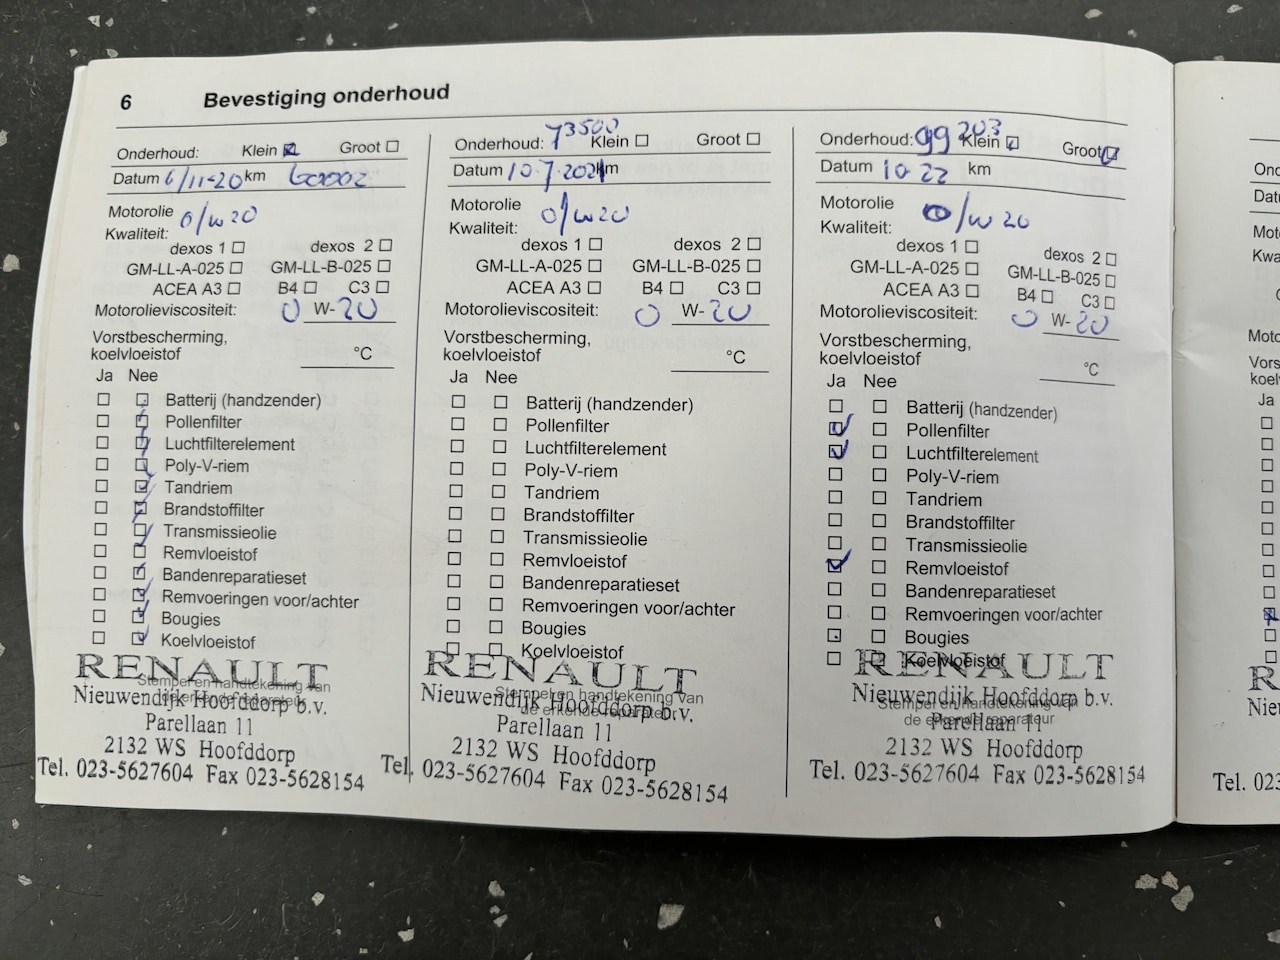 6 Bevestiging onderhoud
Onderhoud: Klein Groot
Datum 6/11-20 km
Motorolie 0/w20
Kwaliteit:
dexos 1 dexos 2
GM-LL-A-025 GM-LL-B-025
ACEA A3 B4 C3
Motorolieviscositeit: 0 W-20
Vorstbescherming,
koelvloeistof °C
Ja Nee
Batterij (handzender)
Pollenfilter
Luchtfilterelement
Poly-V-riem
Tandriem
Brandstoffilter
Transmissieolie
Remvloeistof
Bandenreparatieset
Remvoeringen voor/achter
Bougies
Koelvloeistof
Stempel en handtekening van
de erkende reparateur
RENAULT
Nieuwendijk Hoofddorp b.v.
Parellaan 11
2132 WS Hoofddorp
Tel. 023-5627604 Fax 023-5628154
Onderhoud: 73500 Klein Groot
Datum 10.7.2021 km
Motorolie 0/w20
Kwaliteit:
dexos 1 dexos 2
GM-LL-A-025 GM-LL-B-025
ACEA A3 B4 C3
Motorolieviscositeit: 0 W-20
Vorstbescherming,
koelvloeistof °C
Ja Nee
Batterij (handzender)
Pollenfilter
Luchtfilterelement
Poly-V-riem
Tandriem
Brandstoffilter
Transmissieolie
Remvloeistof
Bandenreparatieset
Remvoeringen voor/achter
Bougies
Koelvloeistof
Stempel en handtekening van
de erkende reparateur
RENAULT
Nieuwendijk Hoofddorp b.v.
Parellaan 11
2132 WS Hoofddorp
Tel. 023-5627604 Fax 023-5628154
Onderhoud: 99203 Klein Groot
Datum 10.22 km
Motorolie 0/w20
Kwaliteit:
dexos 1 dexos 2
GM-LL-A-025 GM-LL-B-025
ACEA A3 B4 C3
Motorolieviscositeit: 0 W-20
Vorstbescherming,
koelvloeistof °C
Ja Nee
Batterij (handzender)
Pollenfilter
Luchtfilterelement
Poly-V-riem
Tandriem
Brandstoffilter
Transmissieolie
Remvloeistof
Bandenreparatieset
Remvoeringen voor/achter
Bougies
Koelvloeistof
Stempel en handtekening van
de erkende reparateur
RENAULT
Nieuwendijk Hoofddorp b.v.
Parellaan 11
2132 WS Hoofddorp
Tel. 023-5627604 Fax 023-5628154
Ja
Tel.